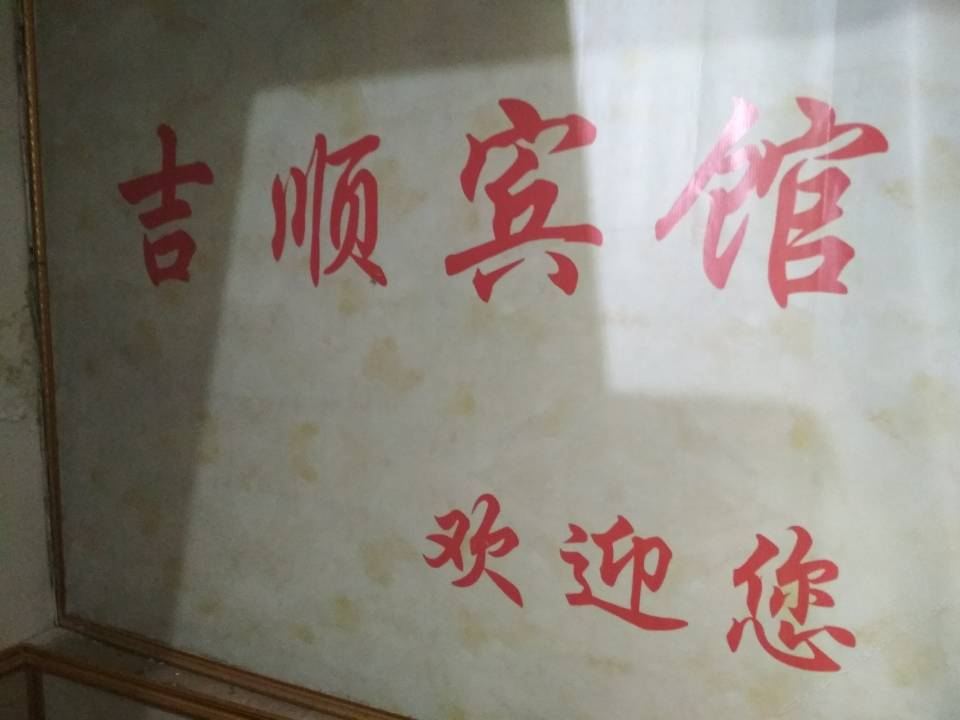 吉顺宾馆
欢迎您